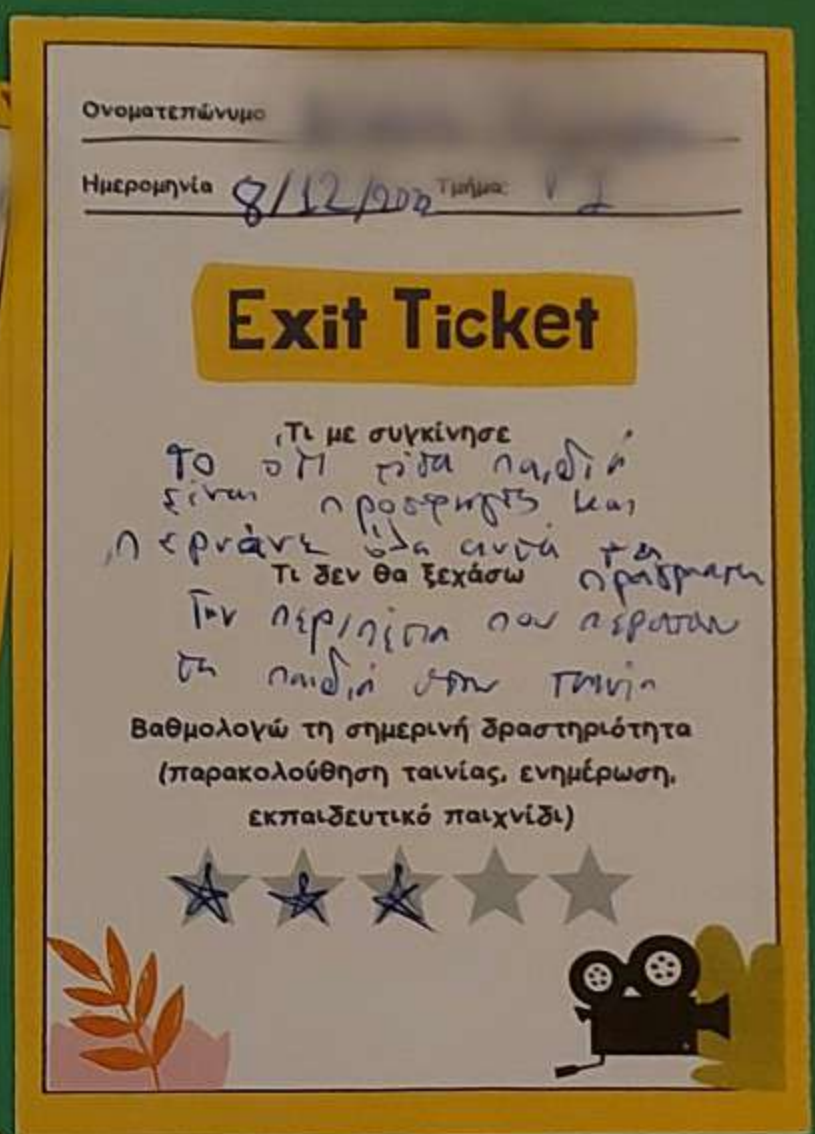 Ονοματεπώνυμο
Ημερομηνία 8/12/202 Τμήμα:
Exit Ticket
Τι με συγκίνησε
το ότι τόσα παιδιά
είναι πρόσφυγες και
περνάνε όλα αυτά τα
πράγματα
Τι δεν θα ξεχάσω
Την περιπέτια που περασαν
τα παιδιά στην ταινία
Βαθμολογώ τη σημερινή δραστηριότητα
(παρακολούθηση ταινίας, ενημέρωση,
εκπαιδευτικό παιχνίδι)